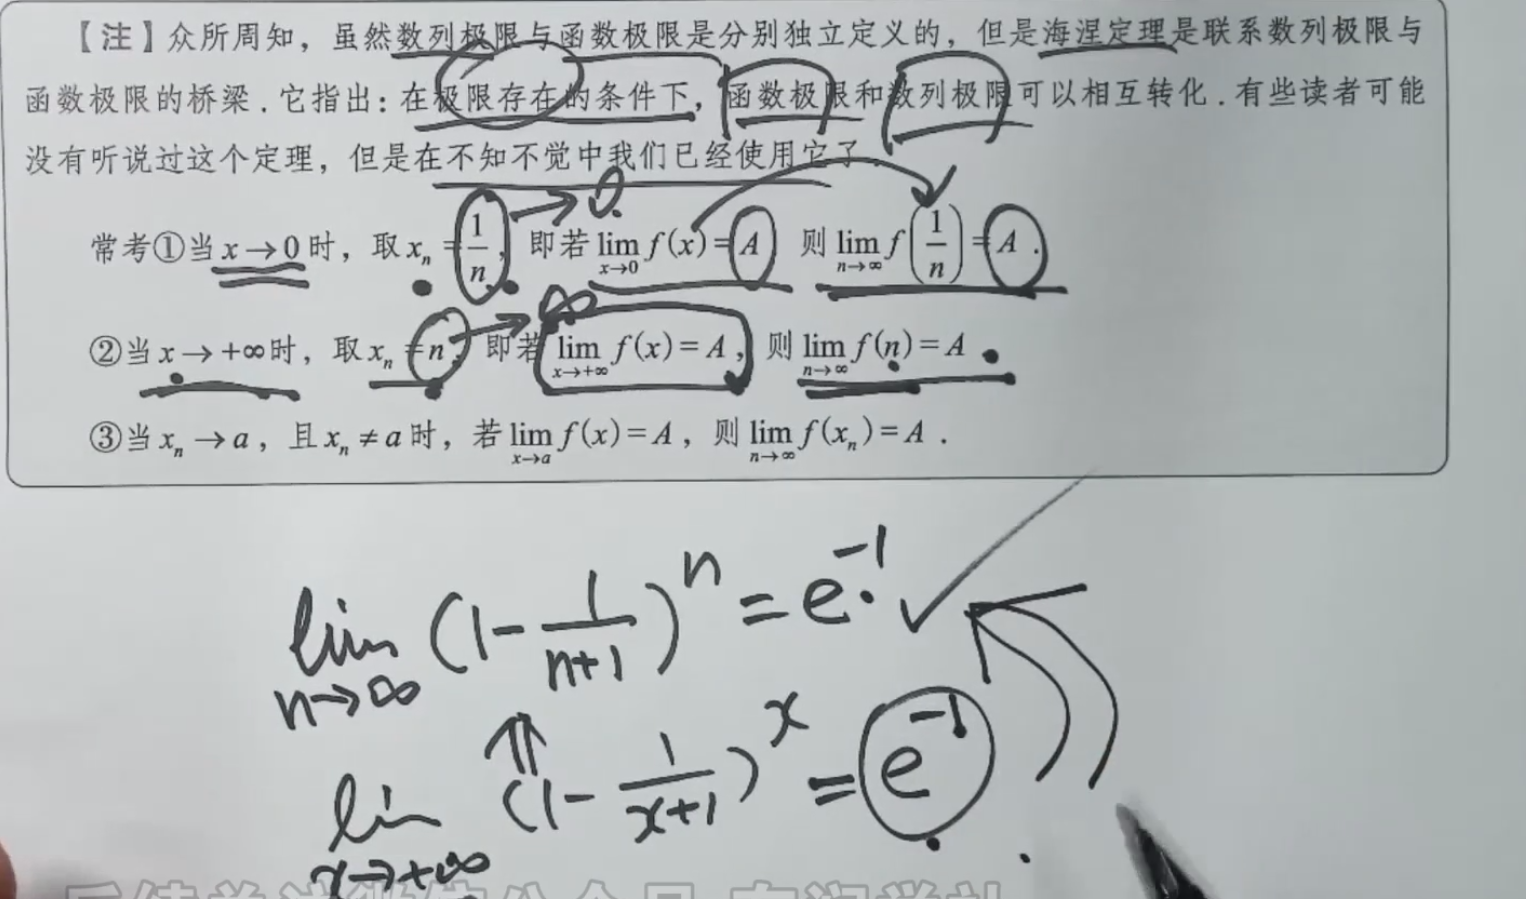 【注】众所周知，虽然数列极限与函数极限是分别独立定义的，但是海涅定理是联系数列极限与
函数极限的桥梁．它指出：在极限存在的条件下，函数极限和数列极限可以相互转化．有些读者可能
没有听说过这个定理，但是在不知不觉中我们已经使用它了
→0.
常考①当 x→0 时，取 xₙ = 1/n，即若 lim_{x→0} f(x) = A 则 lim_{n→∞} f(1/n) = A．
→∞
②当 x→+∞时，取 xₙ = n，即若 lim_{x→+∞} f(x) = A，则 lim_{n→∞} f(n) = A
③当 xₙ→a，且 xₙ≠a 时，若 lim_{x→a} f(x) = A，则 lim_{n→∞} f(xₙ) = A．
lim_{n→∞} (1 - 1/(n+1))^n = e^{-1}. ✓
⇑
lim_{x→+∞} (1 - 1/(x+1))^x = e^{-1}